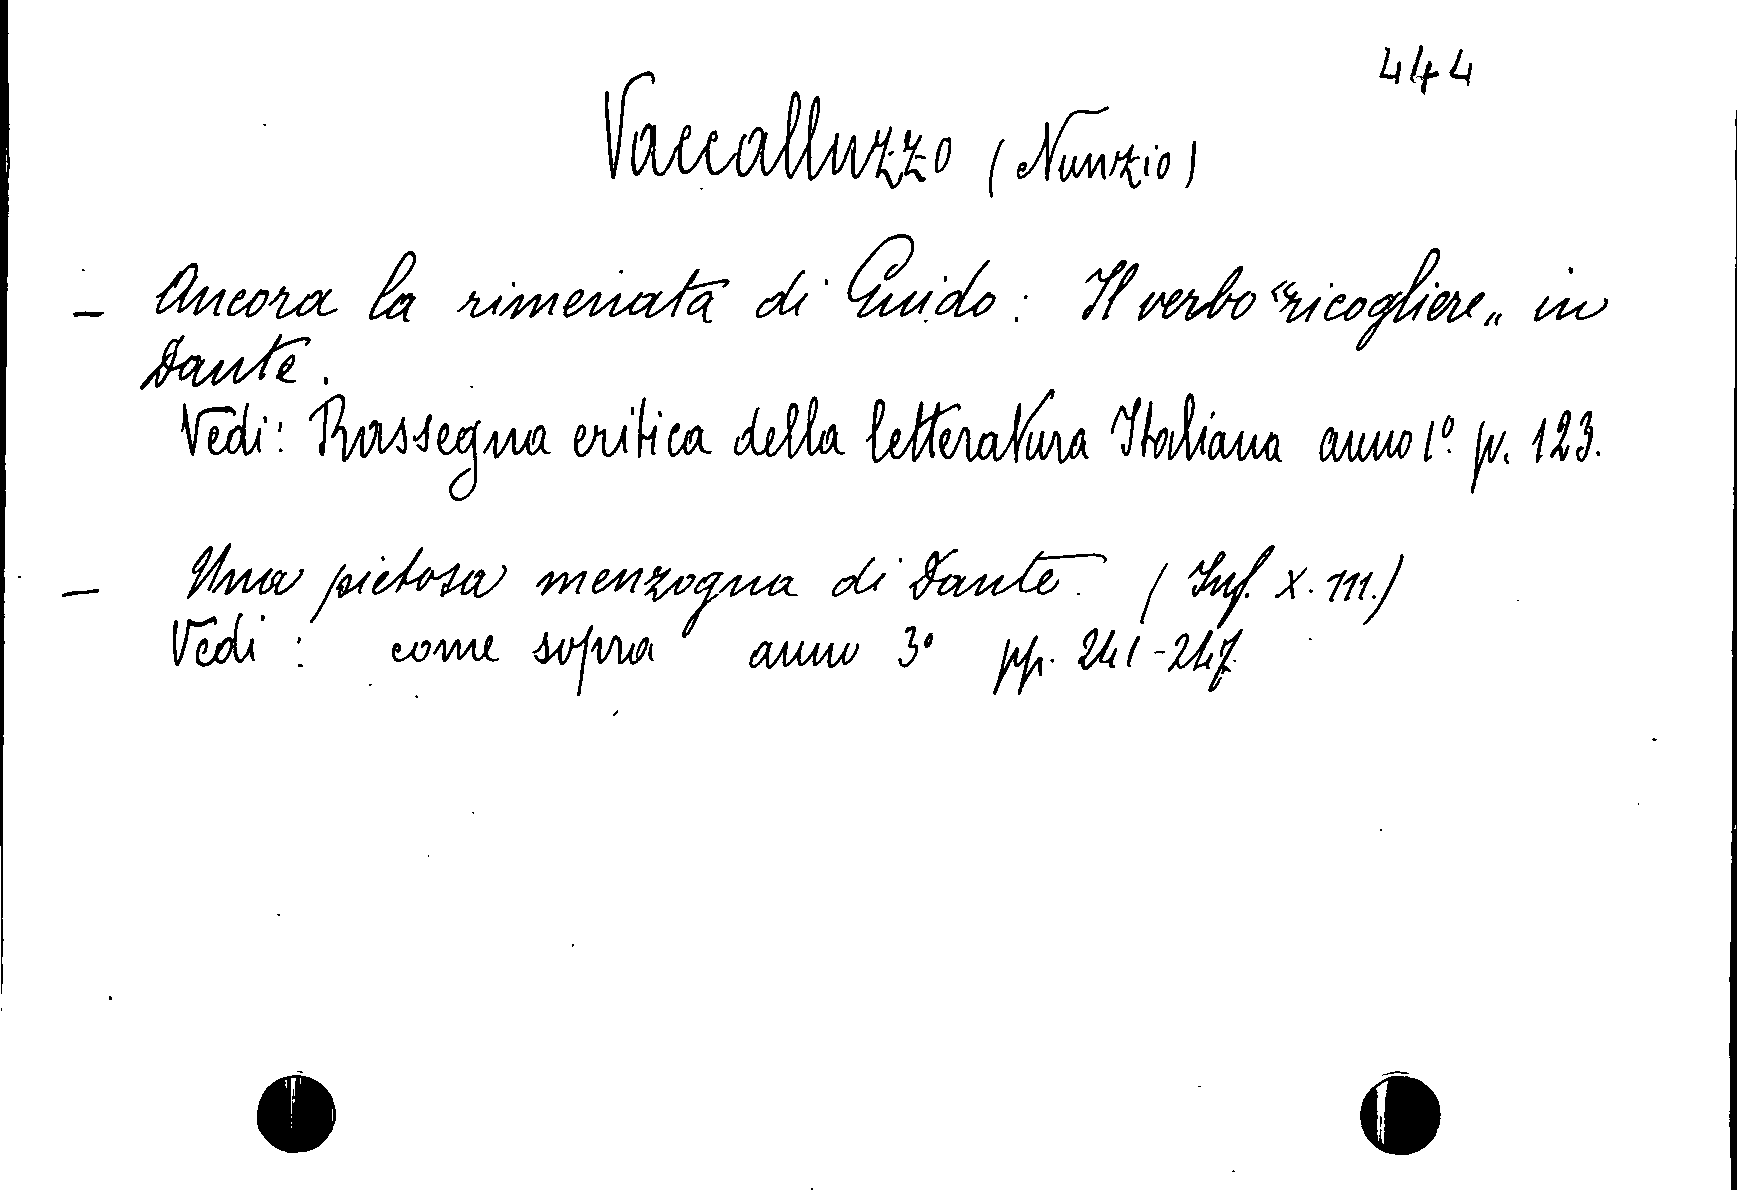 444
Vaccalluzzo (Nunzio)
- Ancora la rimenata di Guido: Il verbo "ricogliere" in
Dante.
Vedi: Rassegna critica della letteratura Italiana anno 1º. p. 123.
- Una pietosa menzogna di Dante. (Inf. X. 111.)
Vedi: come sopra anno 3º pp. 241-247